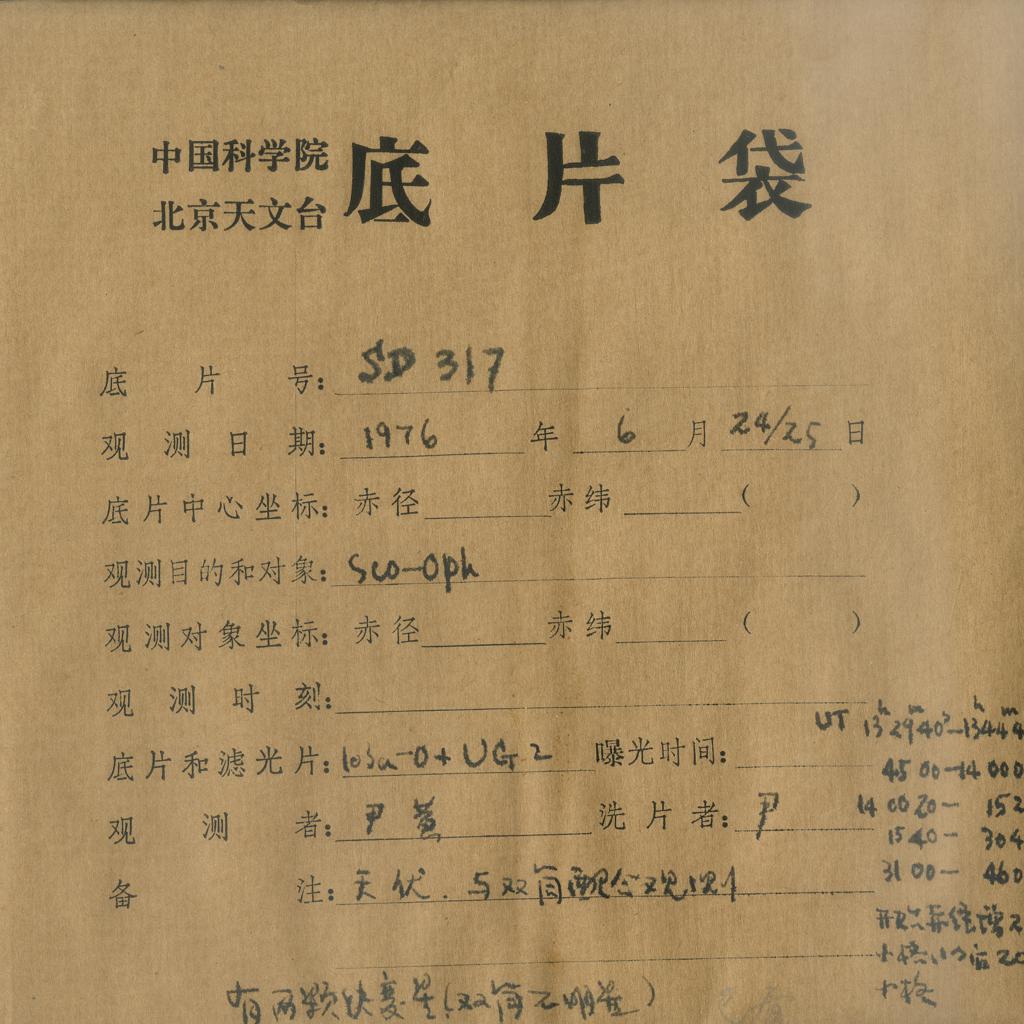 中国科学院
北京天文台
底片袋
底片号: SD 317
观测日期: 1976 年 6 月 24/25 日
底片中心坐标: 赤径 赤纬 ( )
观测目的和对象: Sco-Oph
观测对象坐标: 赤径 赤纬 ( )
观测时刻:
UT 13h 29m 40s-13h 44m 4
底片和滤光片: 103a-O+UG2 曝光时间:
45 00-14 00 0
观测者: 尹 黄 洗片者: 尹
14 00 20- 15 2
15 40- 30 4
31 00- 46 0
备注: 天伏. 与双筒配合观测
有两颗快变星(双筒不明星)